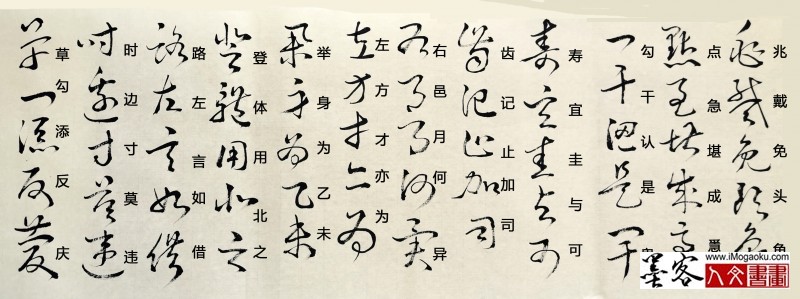 兆戴免头角
点急堪成
勾干认是
寿宜圭与可
齿记止加司
右邑月何异
左方才亦为
举身为乙未
登体用北之
路左言如借
时边寸莫违
草勾添反庆
www.iMogaoku.com
墨客
人文書畫